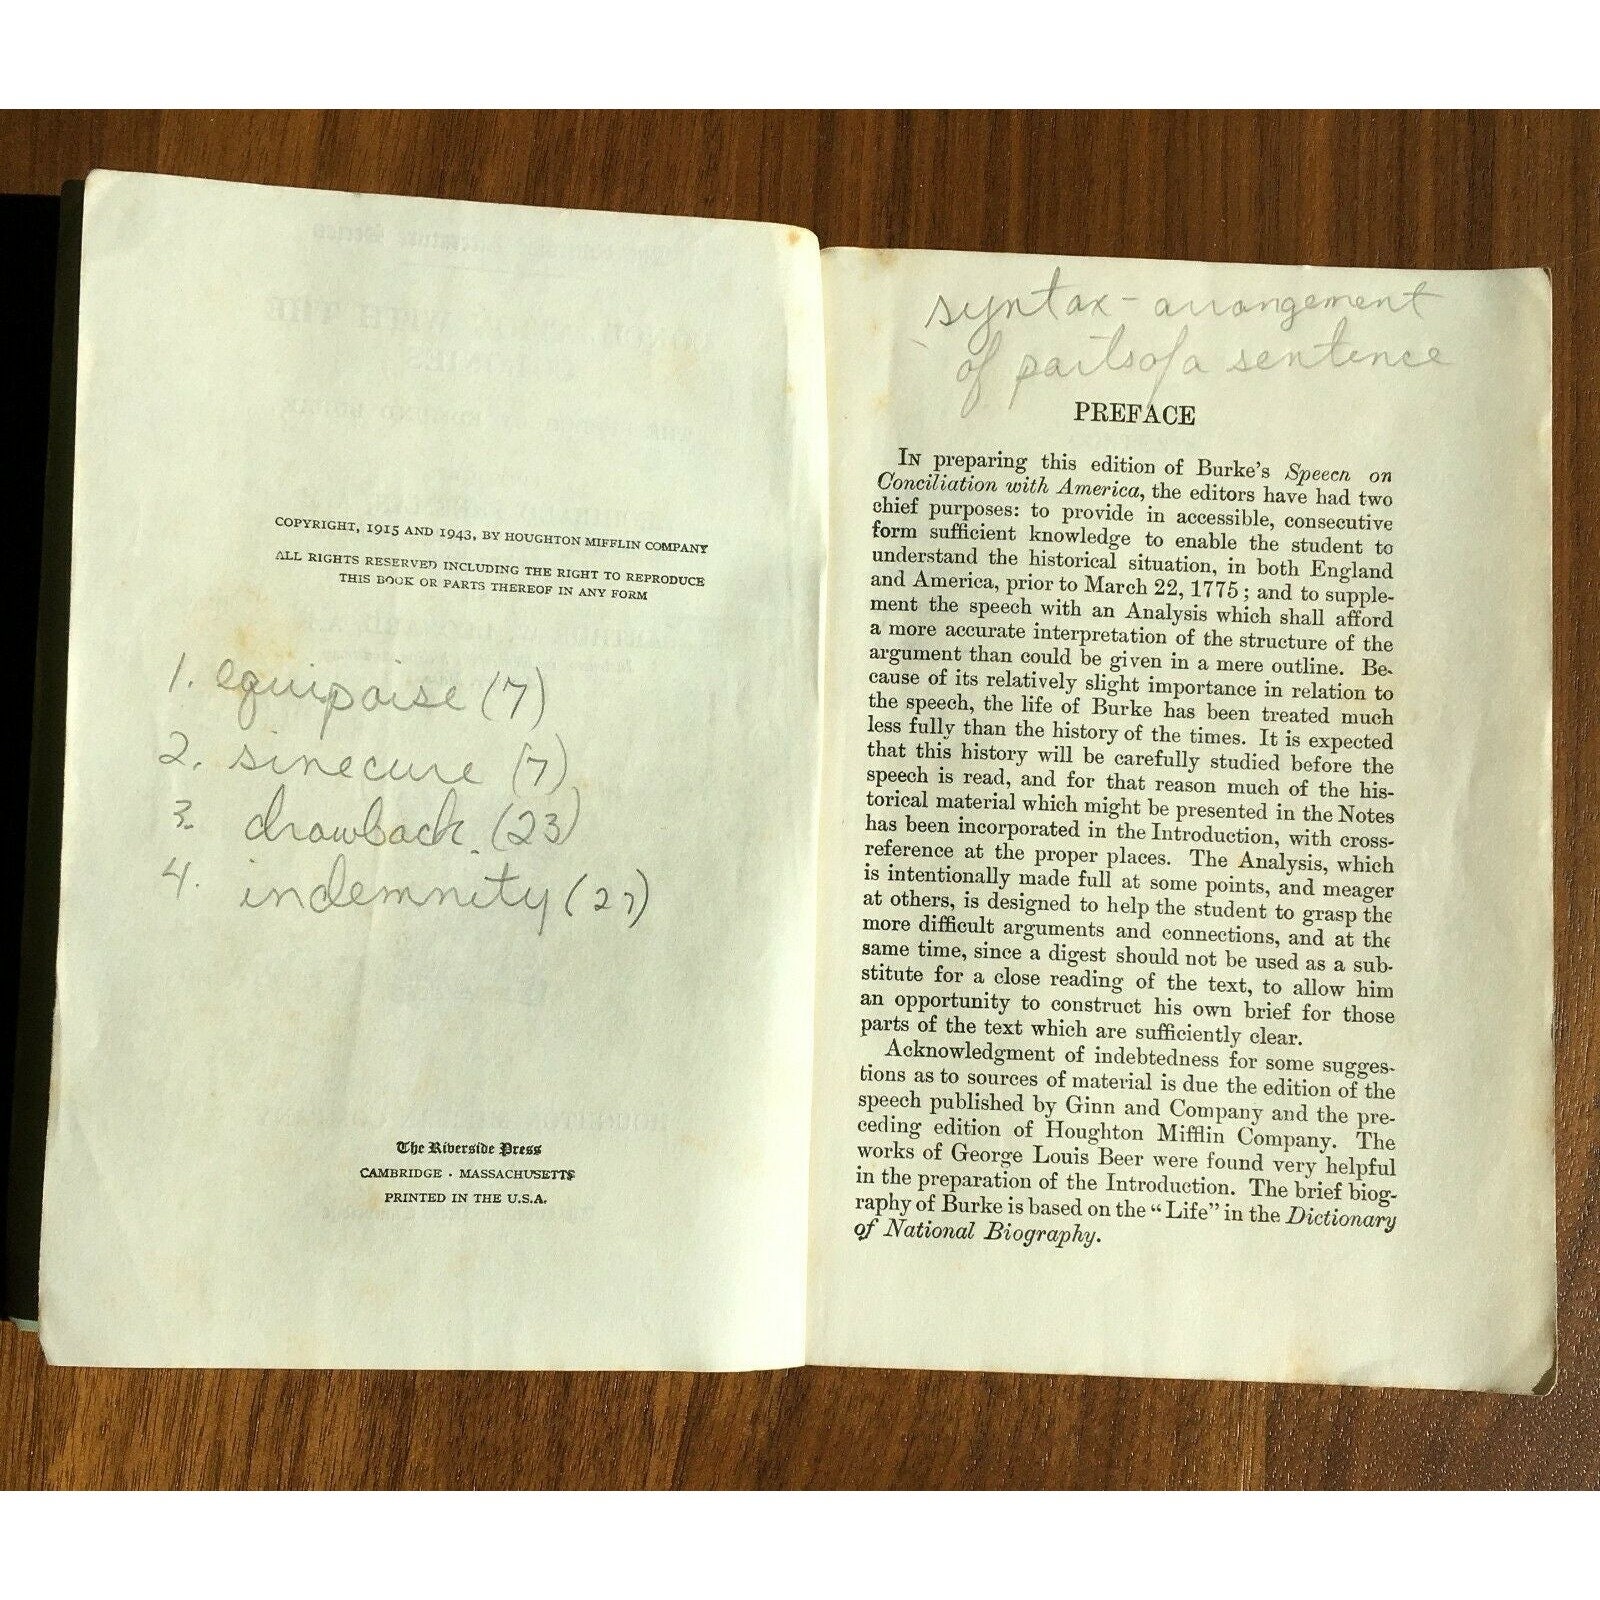 COPYRIGHT, 1915 AND 1943, BY HOUGHTON MIFFLIN COMPANY
ALL RIGHTS RESERVED INCLUDING THE RIGHT TO REPRODUCE
THIS BOOK OR PARTS THEREOF IN ANY FORM
1. equipoise (7)
2. sinecure (7)
3. drawback (23)
4. indemnity (27)
The Riverside Press
CAMBRIDGE · MASSACHUSETTS
PRINTED IN THE U.S.A.
syntax - arrangement
of parts of a sentence
PREFACE
IN preparing this edition of Burke's Speech on
Conciliation with America, the editors have had two
chief purposes: to provide in accessible, consecutive
form sufficient knowledge to enable the student to
understand the historical situation, in both England
and America, prior to March 22, 1775; and to supple-
ment the speech with an Analysis which shall afford
a more accurate interpretation of the structure of the
argument than could be given in a mere outline. Be-
cause of its relatively slight importance in relation to
the speech, the life of Burke has been treated much
less fully than the history of the times. It is expected
that this history will be carefully studied before the
speech is read, and for that reason much of the his-
torical material which might be presented in the Notes
has been incorporated in the Introduction, with cross-
reference at the proper places. The Analysis, which
is intentionally made full at some points, and meager
at others, is designed to help the student to grasp the
more difficult arguments and connections, and at the
same time, since a digest should not be used as a sub-
stitute for a close reading of the text, to allow him
an opportunity to construct his own brief for those
parts of the text which are sufficiently clear.
Acknowledgment of indebtedness for some sugges-
tions as to sources of material is due the edition of the
speech published by Ginn and Company and the pre-
ceding edition of Houghton Mifflin Company. The
works of George Louis Beer were found very helpful
in the preparation of the Introduction. The brief biog-
raphy of Burke is based on the "Life" in the Dictionary
of National Biography.